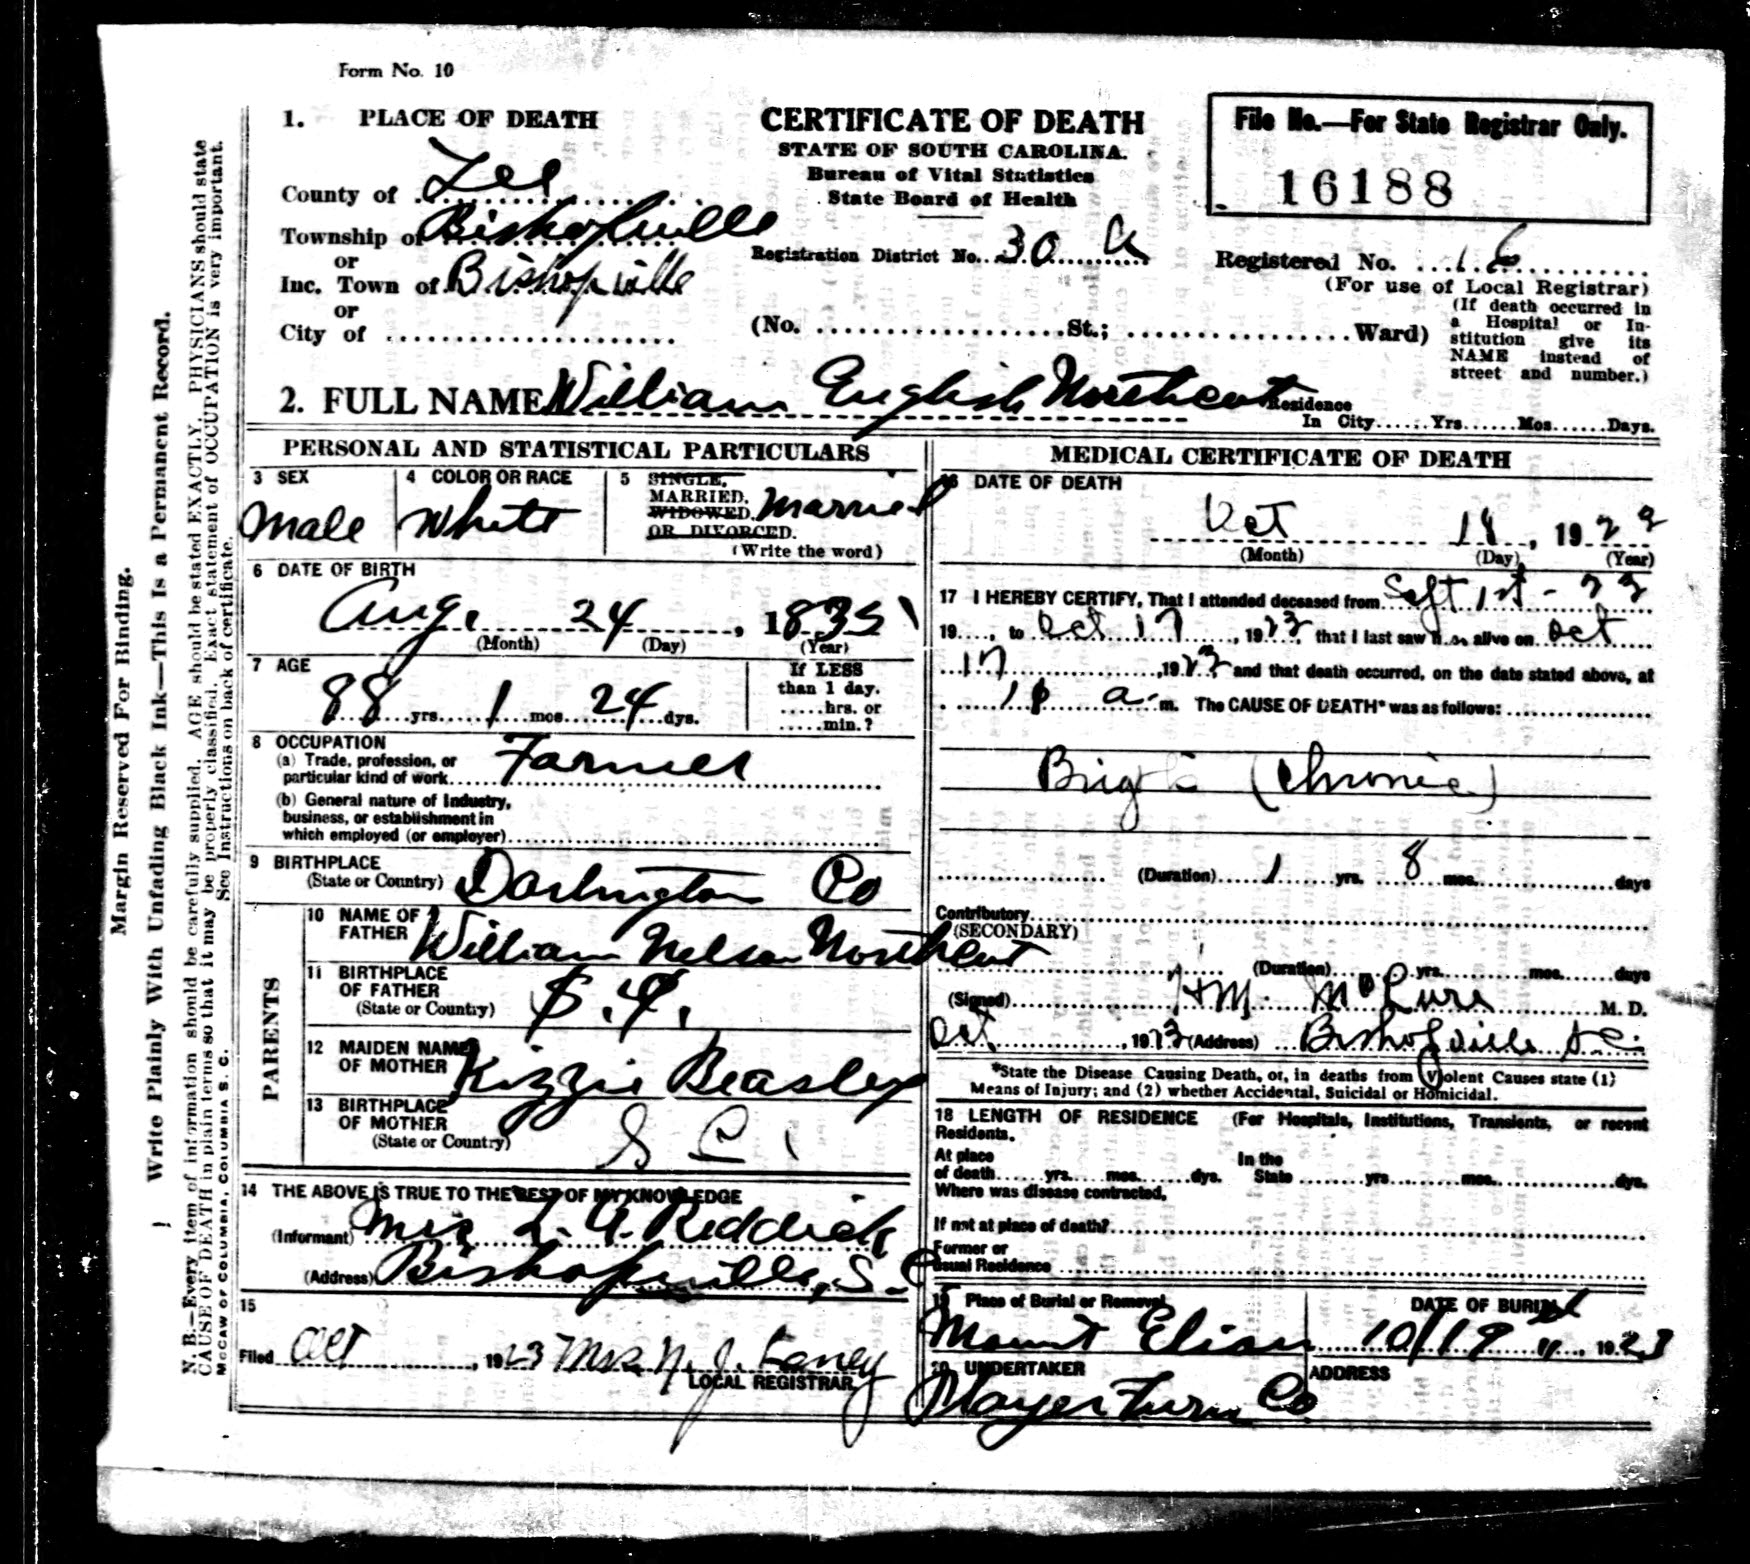 Form No. 10
1. PLACE OF DEATH
County of Lee
Township of Bishopville
or
Inc. Town of Bishopville
or
City of
CERTIFICATE OF DEATH
STATE OF SOUTH CAROLINA.
Bureau of Vital Statistics
State Board of Health
Registration District No. 30 A
(No. St.; Ward)
File No.—For State Registrar Only.
16188
Registered No. 16
(For use of Local Registrar)
(If death occurred in
a Hospital or In-
stitution give its
NAME instead of
street and number.)
2. FULL NAME William English Northcut
Residence
In City Yrs. Mos. Days.
PERSONAL AND STATISTICAL PARTICULARS
3 SEX
Male
4 COLOR OR RACE
White
5 SINGLE,
MARRIED,
WIDOWED,
OR DIVORCED.
Married
(Write the word)
6 DATE OF BIRTH
Aug. 24, 1835
(Month) (Day) (Year)
7 AGE
88 yrs. 1 mos. 24 dys.
If LESS
than 1 day.
hrs. or
min.?
8 OCCUPATION
(a) Trade, profession, or
particular kind of work Farmer
(b) General nature of Industry,
business, or establishment in
which employed (or employer)
9 BIRTHPLACE
(State or Country) Darlington Co
PARENTS
10 NAME OF
FATHER William Nelson Northcut
11 BIRTHPLACE
OF FATHER
(State or Country)
12 MAIDEN NAME
OF MOTHER Kizzie Beasley
13 BIRTHPLACE
OF MOTHER
(State or Country) S C
14 THE ABOVE IS TRUE TO THE BEST OF MY KNOWLEDGE
(Informant) Mrs L. A. Reddick
(Address) Bishopville, S. C
15
Filed Oct, 1923 Mrs N. J.
LOCAL REGISTRAR
MEDICAL CERTIFICATE OF DEATH
16 DATE OF DEATH
Oct 18, 1923
(Month) (Day) (Year)
17 I HEREBY CERTIFY, That I attended deceased from Sept 1st - 23
19, to Oct 17, 1923 that I last saw him alive on Oct
17, 1923 and that death occurred, on the date stated above, at
a. m. The CAUSE OF DEATH* was as follows:
Bright's (Chronic)
(Duration) 1 yrs. 8 mos. days
Contributory
(SECONDARY)
(Duration) yrs. mos. days
(Signed) M. McLure M. D.
Oct, 1923 (Address) Bishopville S.C.
*State the Disease Causing Death, or, in deaths from Violent Causes state (1)
Means of Injury; and (2) whether Accidental, Suicidal or Homicidal.
18 LENGTH OF RESIDENCE (For Hospitals, Institutions, Transients, or recent
Residents.
At place
of death yrs. mos. dys.
In the
State yrs. mos. dys.
Where was disease contracted,
If not at place of death?
Former or
usual Residence
19 Place of Burial or Removal
Mount Elian
DATE OF BURIAL
10/19, 1923
20 UNDERTAKER
Furn Co
ADDRESS
Margin Reserved For Binding.
Write Plainly With Unfading Black Ink—This Is a Permanent Record.
N. B.—Every item of information should be carefully supplied. AGE should be stated EXACTLY. PHYSICIANS should state
CAUSE OF DEATH in plain terms so that it may be properly classified. Exact statement of OCCUPATION is very important.
See Instructions on back of certificate.
McCAW OF COLUMBIA, COLUMBIA S. C.